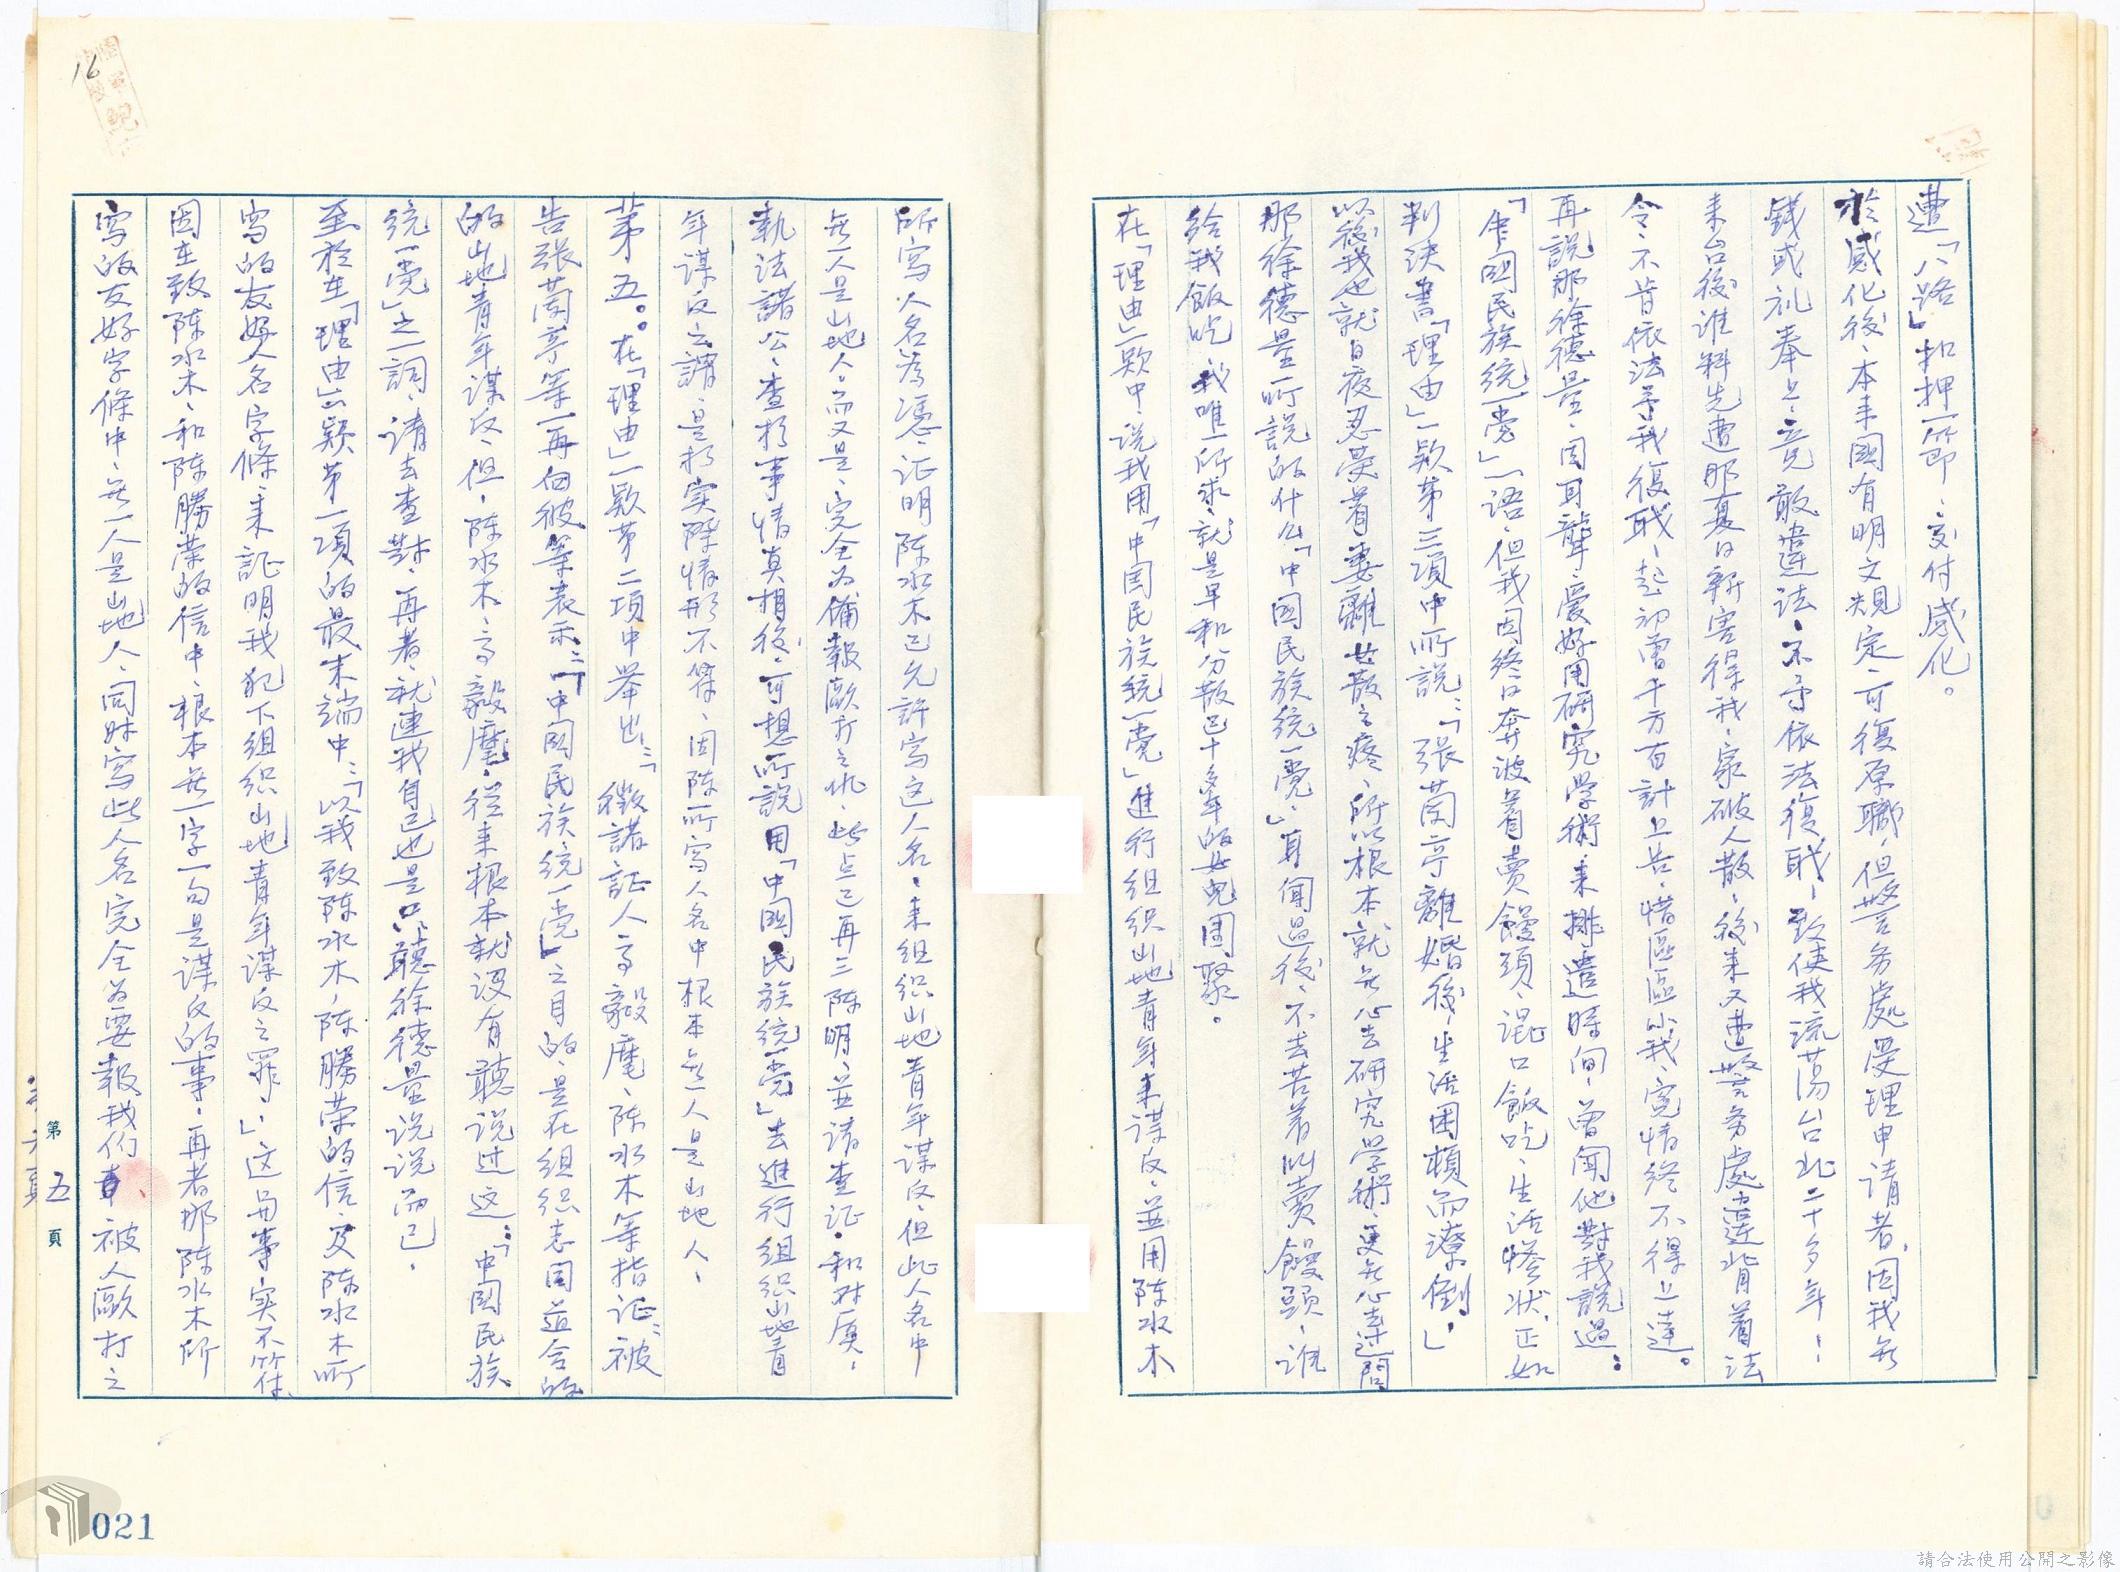 遭「八路」扣押一節、交付感化。
於感化後、本來國有明文規定、可復原職、但警务處受理申请者、因我無
錢或礼奉上、竟敢違法、不予依法復职、致使我流荡台北二十多年！
来台後谁料先遭那夏日新害得我、家破人散、後来又遭警务處違背着法
令、不肯依法予我復职、起初曾千方百計上告、惜區區小我、寃情终不得上達。
再說那徐德量、因耳聾、爱好用研究学術、来排遣時间、曾闻他對我說過：
「中國民族统一党」一语、但我因终日奔波着賣饅頭、混口飯吃、生活惨状、正如
判決書「理由」一款第三項中所說：「張蘭亭離婚後、生活困頓而潦倒」、
以後我也就日夜忍受着妻離女散之疼、所以根本就無心去研究学術、更無心去过問
那徐德量所說的什么「中國民族统一党」、耳闻過後、不去苦着叫賣饅頭、谁
给我飯吃、我唯一所求、就是早和分散已十多年的女兒團聚。
在「理由」一款中、说我用「中國民族统一党」進行组织山地青年来谋反、並用陈水木
所写人名為憑、证明陈水木已允許写这人名、来组织山地青年谋反、但此人名中
無一人是山地人。而又是、完全为備報毆打之仇、此点已再三陈明、並请查证、和对质、
執法諸公、查於事情真相後、可想所說用「中國民族统一党」去進行组织山地青
年谋反之謂、是於实際情形不符、因陈所写人名中根本無一人是山地人、
第五。。在「理由」一款第二項中举出：「徵諸証人高毅麾、陈水木等指证：被
告張蘭亭等一再向彼等表示：「中國民族统一党」之目的、是在组织志同道合的
的山地青年谋反、但、陈水木、高毅麾、從来根本就没有聽说过这：「中國民族
统一党」之一詞、请去查對、再者、就連我自己也是口聽徐德量说说而己、
至於在「理由」一款第一項的最末端中：「以我致陈水木、陈勝荣的信、及陈水木所
寫的友好人名字條、来証明我犯下组织山地青年谋反之罪」、这與事实不符、
因在致陈水木、和陈勝荣的信中、根本無一字一句是谋反的事、再者那陈水木所
寫的友好字條中、無一人是山地人、同時寫此人名完全为要報我们被人毆打之
第五頁
16
021
請合法使用公開之影像